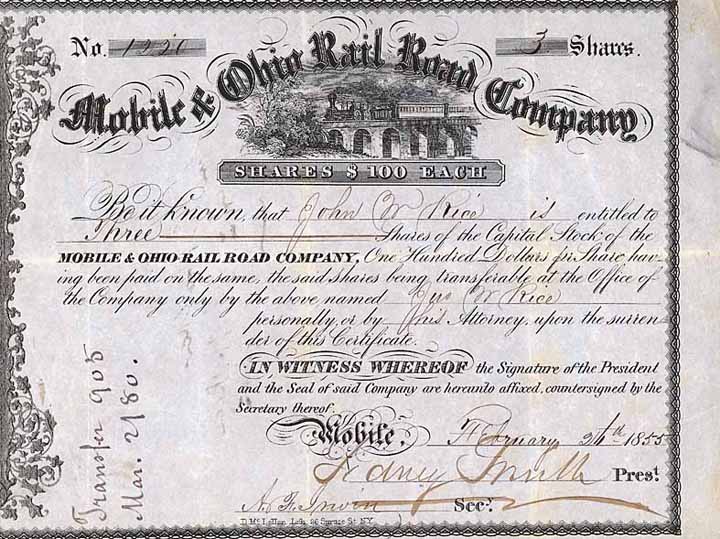 No. 1220 3 Shares.
Mobile & Ohio Rail Road Company
SHARES $ 100 EACH
Be it known, that John W Rice is entitled to
Three Shares of the Capital Stock of the
MOBILE & OHIO RAIL ROAD COMPANY, One Hundred Dollars pr. Share, hav-
ing been paid on the same, the said shares being transferable at the Office of
the Company only by the above named Jno W Rice
personally, or by his Attorney, upon the surren-
der of this Certificate.
IN WITNESS WHEREOF the Signature of the President
and the Seal of said Company are hereunto affixed, countersigned by the
Secretary thereof.
Mobile, February 1855
Sidney Smith Prest.
A. F. Irwin Secy.
Lith. 86 Spruce St. N.Y.
Transfer 905
Mar. 2/80.